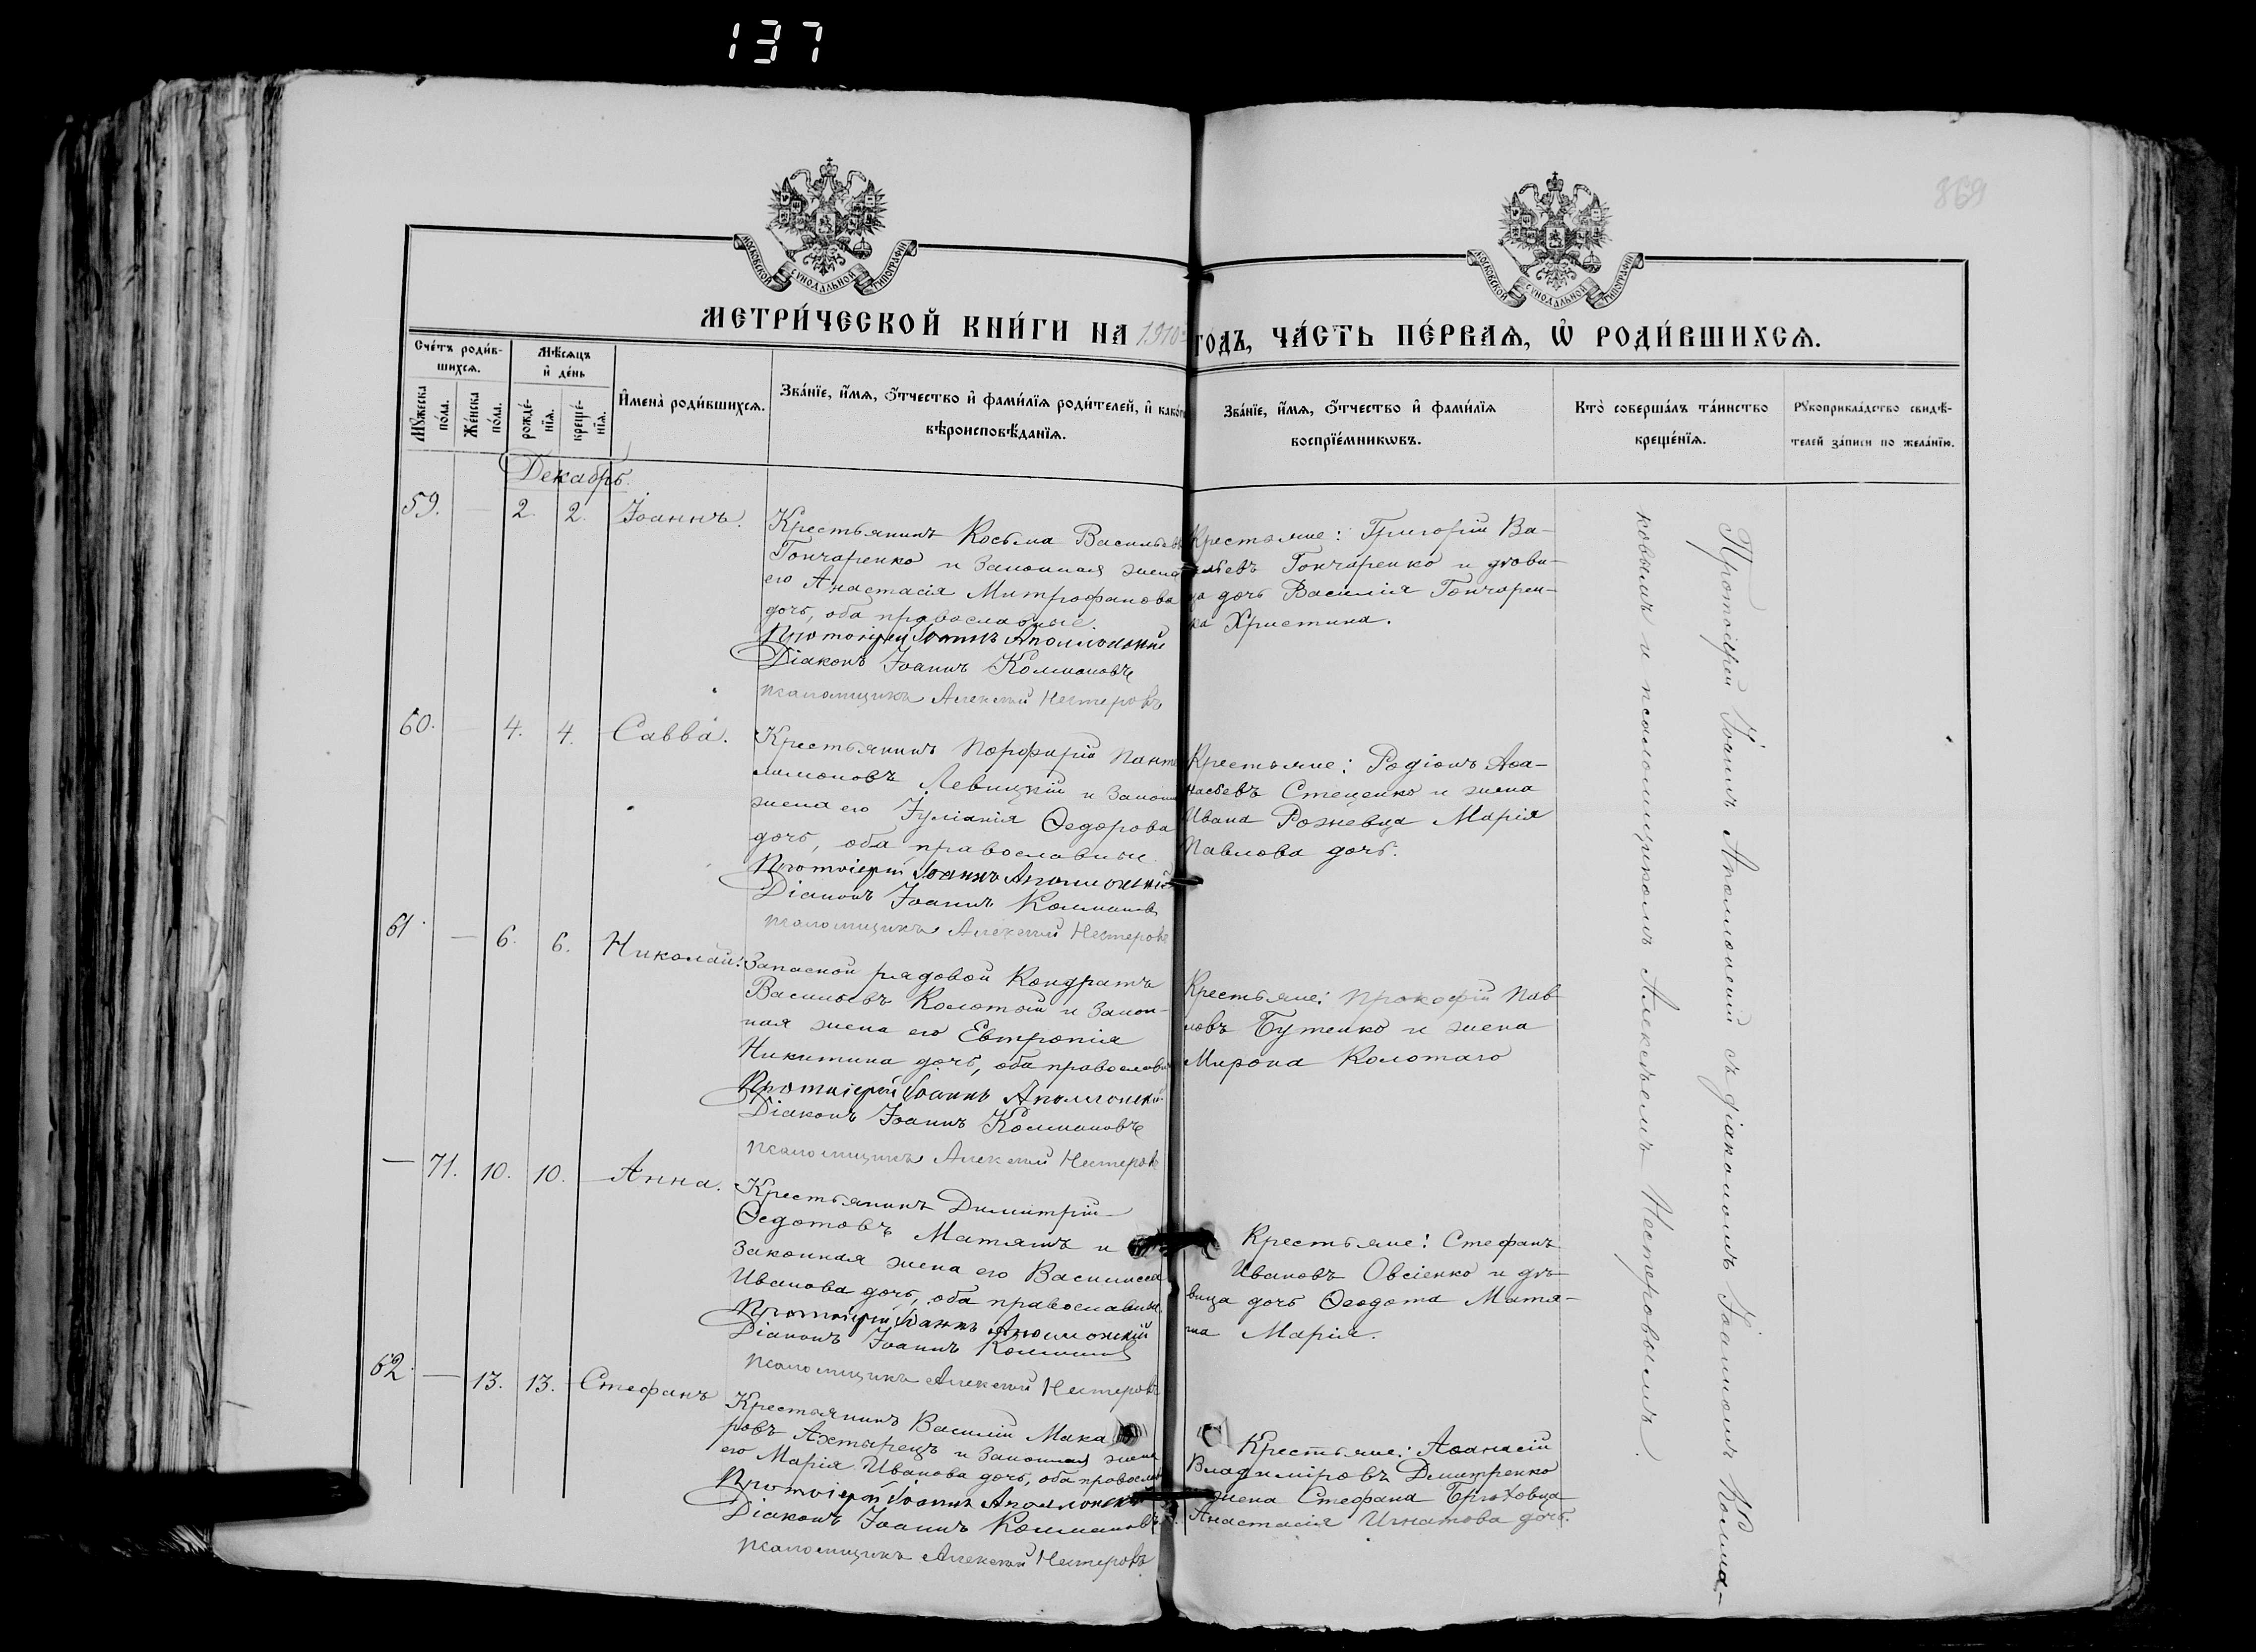 137
869
МОСКОВСКОЙ СѴНОДАЛЬНОЙ ТИПОГРАФІИ
МОСКОВСКОЙ СѴНОДАЛЬНОЙ ТИПОГРАФІИ
МЕТРИ́ЧЕСКОЙ КНИ́ГИ НА 1910 ГОДЪ, ЧА́СТЬ ПЕ́РВАѦ, Ѡ҆ РОДИ́ВШИХСѦ.
Сче́тъ роди́в-
шихсѧ.
Мꙋжеска
по́ла.
Же́нска
по́ла.
Мѣ́сѧцъ
и҆ де́нь
рожде́-
нїѧ.
креще́-
нїѧ.
И҆мена̀ роди́вшихсѧ.
Зва́нїе, и҆́мѧ, ѻ҆́тчество и҆ фами́лїѧ роди́телей, и҆ како́г
вѣроисповѣ́данїѧ.
Зва́нїе, и҆́мѧ, ѻ҆́тчество и҆ фами́лїѧ
воспрїе́мникѡвъ.
Кто̀ соверша́лъ та́инство
креще́нїѧ.
Рꙋкоприкла́дство свидѣ́-
телей за́писи по жела́нїю.
Декабрь.
59. — 2. 2. Іоаннъ.
Крестьянинъ Косьма Васильевъ
Гончаренко и законная жена
его Анастасія Митрофанова
дочь, оба православные.
Протоіерей Іоаннъ Аполлонскій
Діаконъ Іоаннъ Колмаковъ
псаломщикъ Алексѣй Нестеровъ
Крестьяне: Григорій Ва-
сильевъ Гончаренко и дѣви-
ца дочь Василія Гончарен-
ка Христина.
60. — 4. 4. Савва.
Крестьянинъ Порфирій Панте
леимоновъ Левицкій и законн
жена его Іуліанія Ѳедорова
дочь, оба православные.
Протоіерей Іоаннъ Аполлонскій
Діаконъ Іоаннъ Колмаковъ
псаломщикъ Алексѣй Нестеровъ
Крестьяне: Родіонъ Аѳа-
насьевъ Стеценко и жена
Ивана Рожевца Марія
Павлова дочь.
61. — 6. 6. Николай.
Запасной рядовой Кондратъ
Васильевъ Колотый и закон-
ная жена его Евтропія
Никитина дочь, оба православн
Протоіерей Іоаннъ Аполлонскій
Діаконъ Іоаннъ Колмаковъ
псаломщикъ Алексѣй Нестеровъ
Крестьяне: Прокофій Пав-
ловъ Бутенко и жена
Мирона Колотаго
— 71. 10. 10. Анна.
Крестьянинъ Димитрій
Ѳедотовъ Матяшъ и
законная жена его Василисса
Иванова дочь, оба православные.
Протоіерей Іоаннъ Аполлонскій
Діаконъ Іоаннъ Колмаковъ
псаломщикъ Алексѣй Нестеровъ
Крестьяне: Стефанъ
Ивановъ Овсіенко и дѣ-
вица дочь Ѳеодота Матя-
ша Марія.
62. — 13. 13. Стефанъ
Крестьянинъ Василій Мака
ровъ Ахтырецъ и законная жена
его Марія Иванова дочь, оба православн
Протоіерей Іоаннъ Аполлонскій
Діаконъ Іоаннъ Колмаковъ
псаломщикъ Алексѣй Нестеровъ
Крестьяне: Аѳанасій
Владиміровъ Дмитренко
жена Стефана Брюховца
Анастасія Игнатова дочь.
Протоіерей Іоаннъ Аполлонскій съ діакономъ Іоанномъ Колма-
ковымъ и псаломщикомъ Алексѣемъ Нестеровымъ.